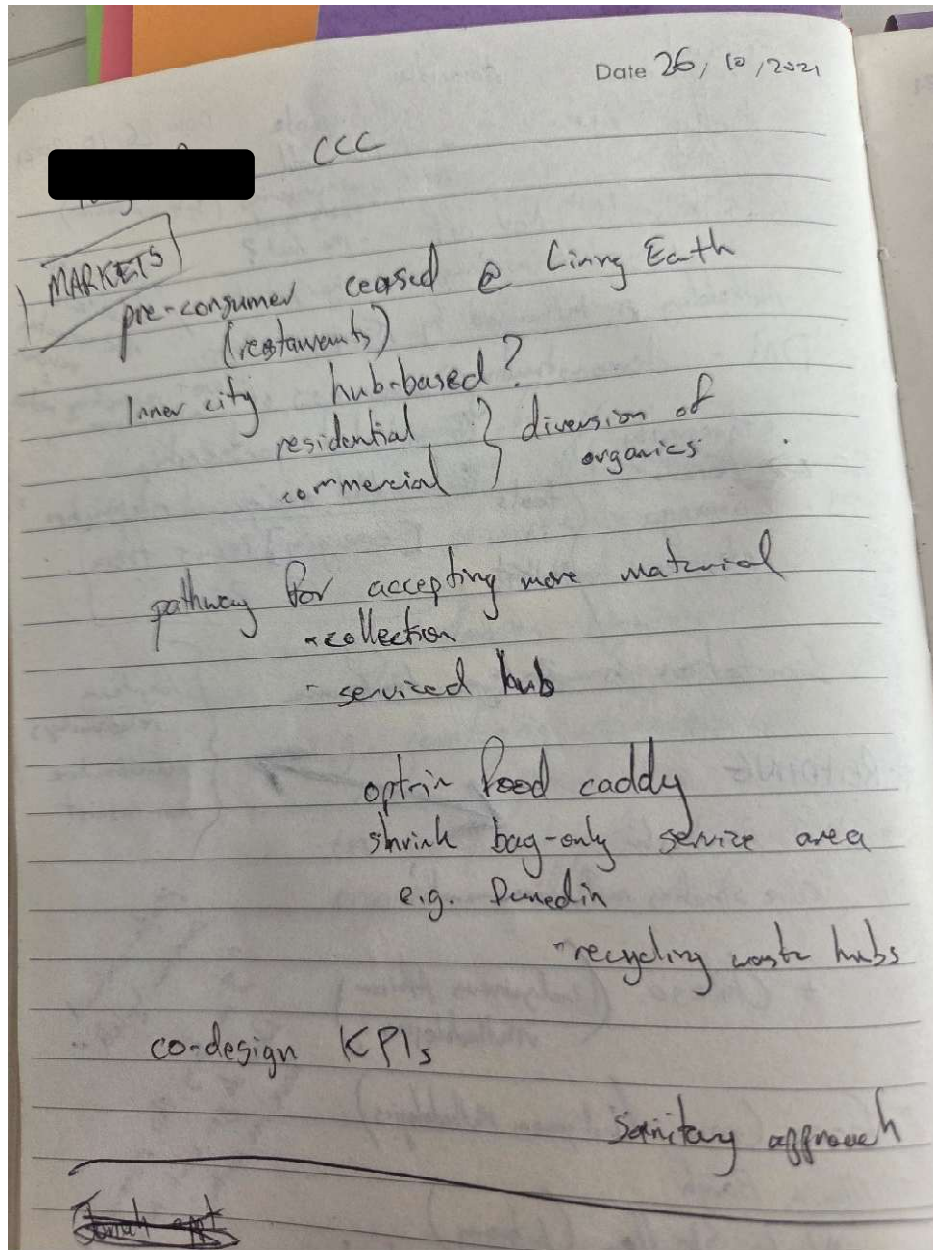 Date 26/10/2021
CCC
MARKETS
pre-consumer ceased @ Living Earth
(restaurants)
Inner city hub-based?
residential } diversion of
commercial } organics
pathway for accepting more material
- collection
- serviced hub
opt-in food caddy
shrink bag-only service area
e.g. Dunedin
- recycling waste hubs
co-design KPIs
Sanitary approach